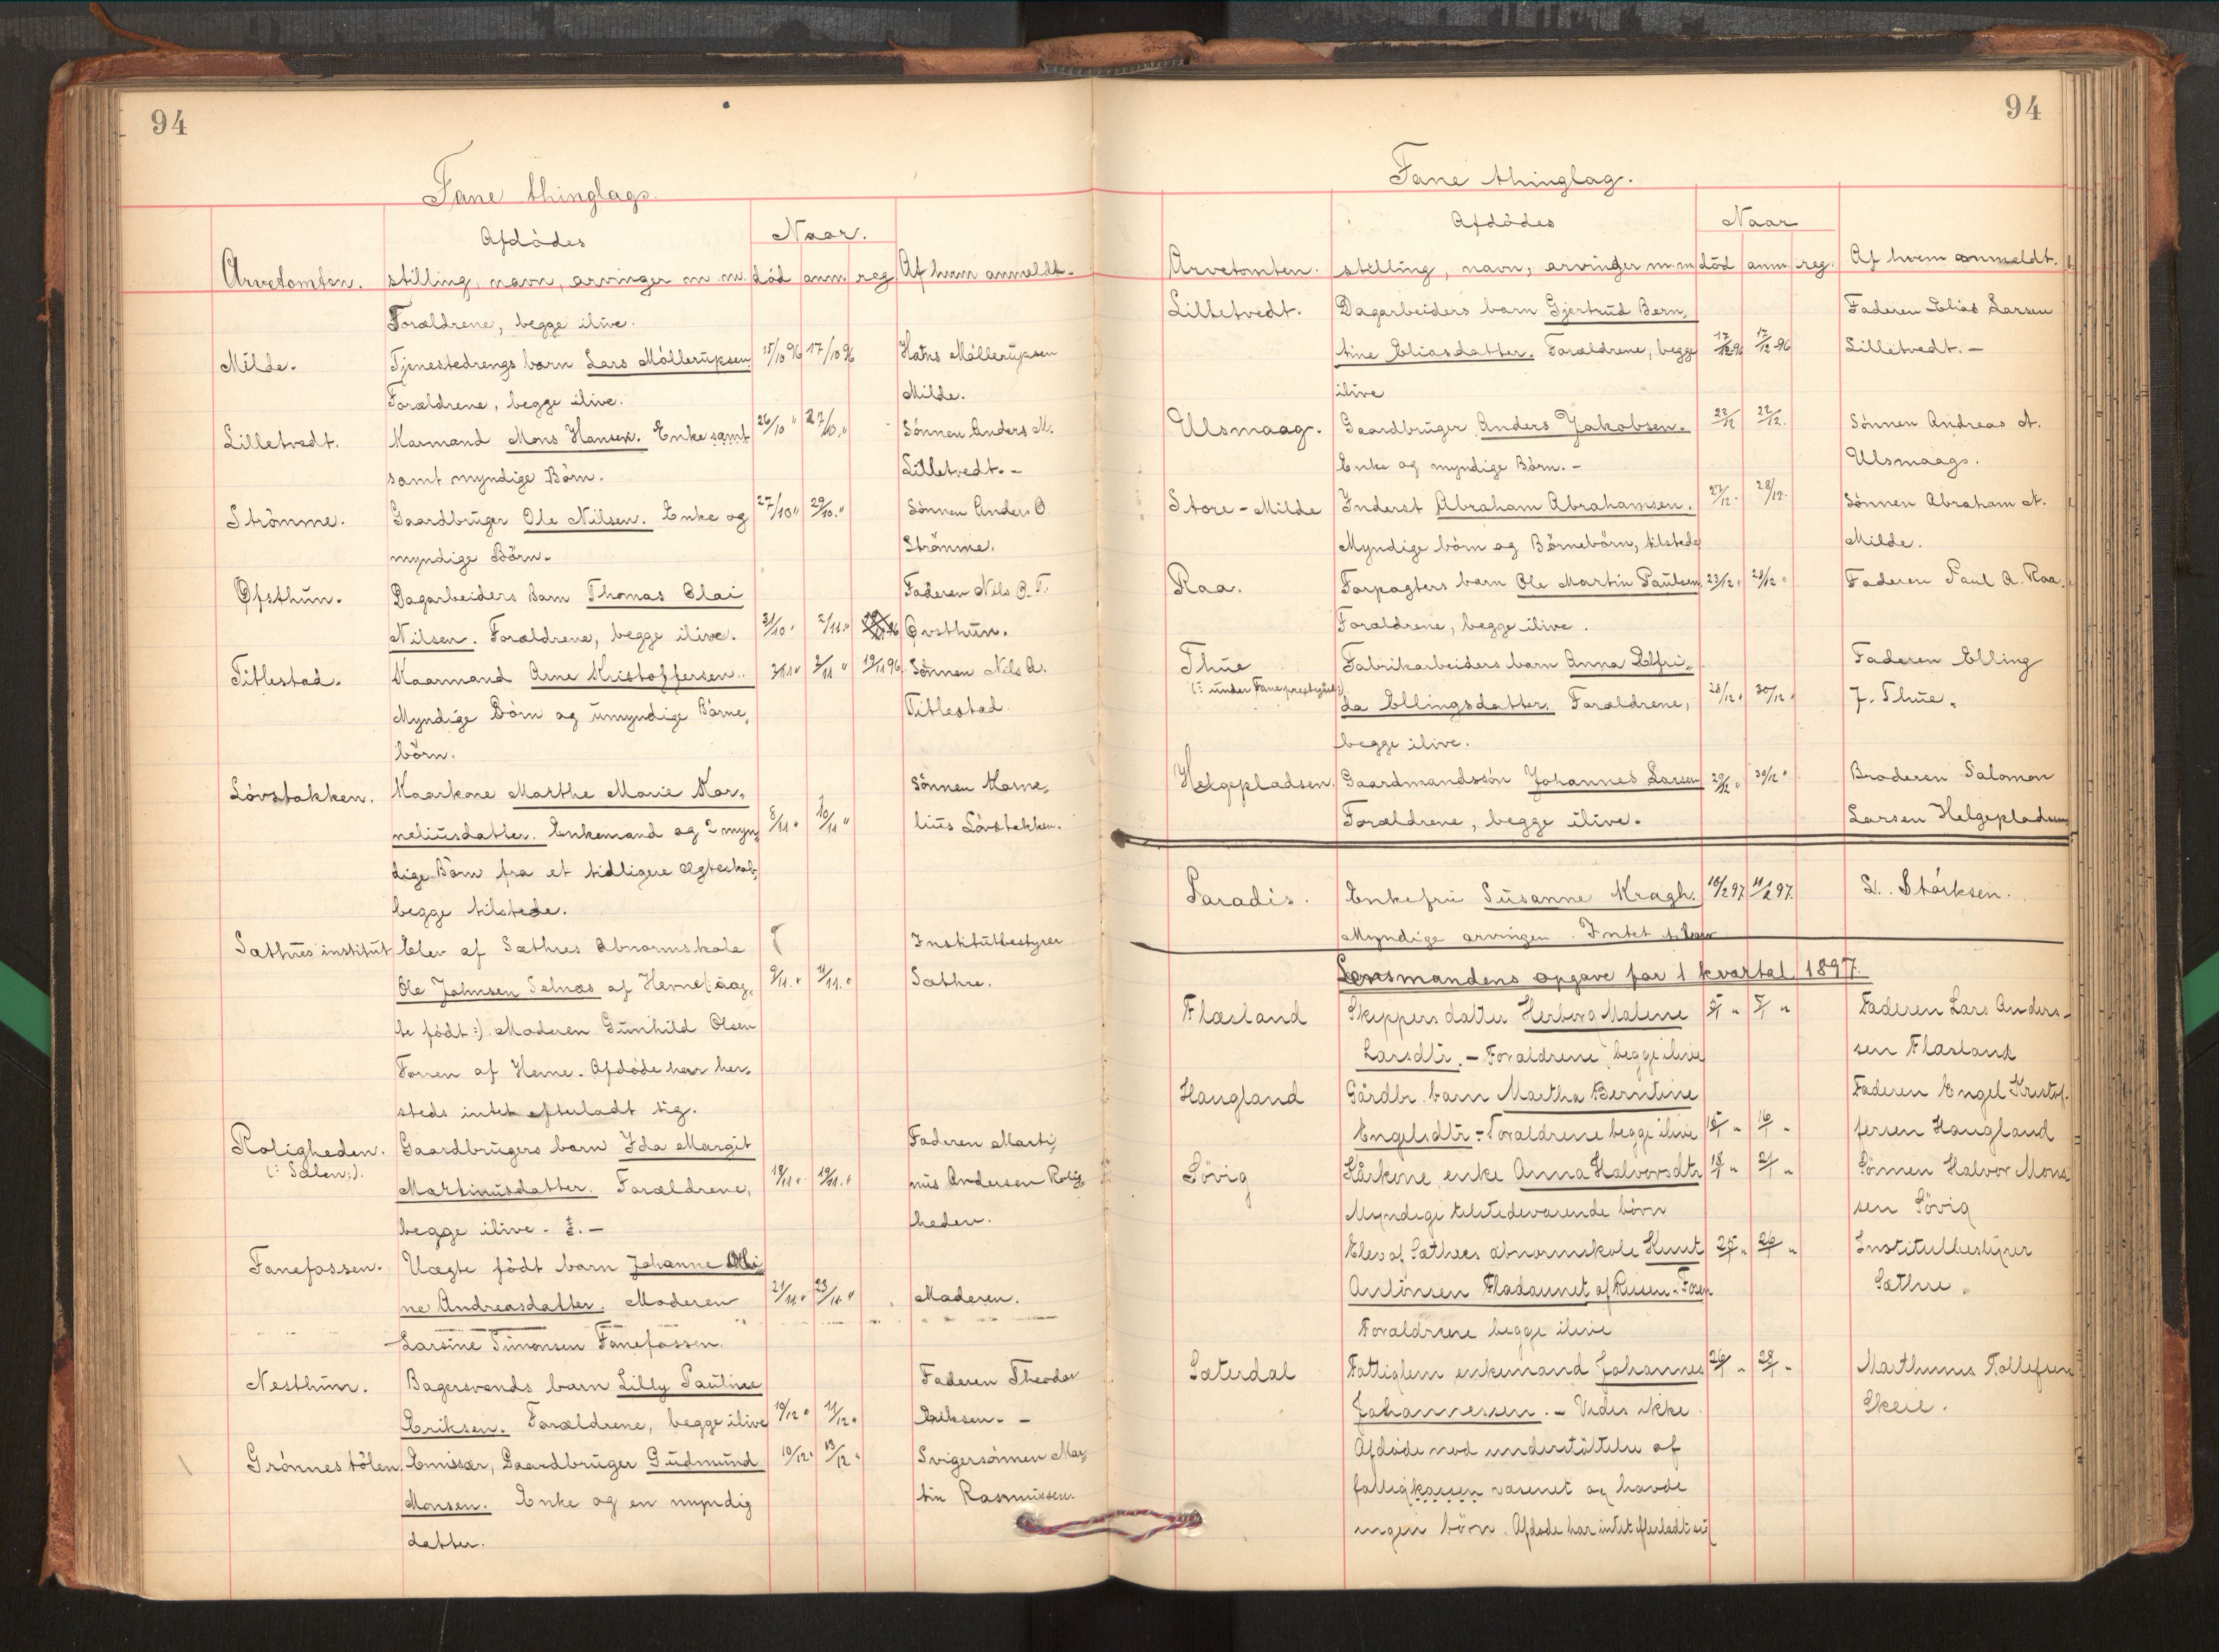 94
Fane thinglags.
Arvetomten. Afdödes stilling, navn, arvinger m.m. Naar. död anm reg Af hvem anmeldt.
Forældrene, begge ilive.
Milde. Tjenestedrengs barn Lars Mölleruksen 15/10 96 17/10 96 Hans Mölleruksen
Forældrene, begge ilive. Milde.
Lilletvedt. Karmand Mons Hansen. Enke samt 26/10 " 27/10 " Sönnen Anders M.
samt myndige Börn. Lilletvedt. -
Strömme. Gaardbruger Ole Nilsen. Enke og 27/10 " 29/10 " Sönnen Anders O
myndige Börn. Strömme.
Øfsthun. Dagarbeiders Barn Thomas Olai Faderen Nils O. T.
Nilsen. Forældrene, begge ilive. 31/10 " 2/11 " Øvsthun.
Titlestad. Kaarmand Arne Kristoffersen. 2/11 " 3/11 " 19/11 96 Sönnen Nils A.
Myndige Börn og umyndige Börne, Titlestad.
börn.
Lövstakken. Kaarkone Marthe Marie Kor, Sönnen Korne,
neliusdatter. Enkemand og 2 myn, 8/11 " 10/11 " lius Lövstakken.
dige Börn fra et tidligere ægteskab,
begge tilstede.
Sæthres institut Elev af Sæthres Abnormskole Institutbestyrer
Ole Johnsen Selnæs af Herne (: uæg, 9/11 " 11/11 " Sæthre.
te födt :) Moderen Gunhild Olsen
Forren af Herne. Afdöde har her,
steds intet efterladt sig.
Roligheden. Gaardbrugers barn Ida Margit Faderen Marti,
(: Sælen :). Martinusdatter. Forældrene, 18/11 " 19/11 " nus Andersen Rolig,
begge ilive. -  heden.
Fanefossen. Uægte födt barn Johanne
ne Andreasdatter. Moderen 21/11 " 23/11 " Moderen.
Larsine Simonsen Fanefossen.
Nesthun. Bagersvends barn Lilly Pauline Faderen Theodor
Eriksen. Forældrene, begge ilive 10/12 " 11/12 " Eriksen. -
Grönnestölen. Emissær, Gaardbruger Gudmund 10/12 " 13/12 " Svigersönnen Mar,
Monsen. Enke og en myndig tin Rasmussen.
datter.
94
Fane thinglag.
Arvetomten. Afdödes stilling, navn, arvinger m.m. Naar död anm reg. Af hvem anmeldt.
Lilletvedt. Dagarbeiders barn Gjertrud Bern, Faderen Elias Larsen
tine Eliasdatter. Forældrene, begge 12/12-96 17/12-96 Lilletvedt. -
ilive
Ulsmaag. Gaardbruger Anders Jakobsen. 22/12 22/12. Sönnen Andreas A.
Enke og myndige Börn. - Ulsmaag.
Store-Milde Inderst Abraham Abrahamsen. 27/12. 28/12. Sönnen Abraham A.
Myndige börn og Börnebörn, tilstede Milde.
Raa. Forpagters barn Ole Martin Paulsen. 23/12 " 28/12 " Faderen Paul A. Raa.
Forældrene, begge ilive.
Thue Fabrikarbeiders barn Anna Elfri, Faderen Elling
(: under Fane prestegård :) da Ellingsdatter. Forældrene, 28/12 " 30/12 " J. Thue.
begge ilive.
Helgepladsen. Gaardmandssön Johannes Larsen 29/12 " 30/12 " Broderen Salomon
Forældrene, begge ilive. Larsen Helgepladsen
Paradis. Enkefru Susanne Kragh. 10/2 97 11/2 97. L. Störksen.
Myndige arvinger. Intet
Lensmandens opgave for 1 kvartal 1897.
Flæsland Skippers datter Herborg Malene 5/1 " 7/1 " Faderen Lars Anders-
Larsdtr. - Forældrene begge ilive sen Flæsland
Haugland Gårdbr. barn Martha Berntine Faderen Engel Kristof-
Engelsdtr - Forældrene begge ilive 15/1 " 16/1 " fersen Haugland
Sövig Kårkone, enke Anna Halvorsdtr 18/1 " 21/1 " Sönnen Halvor Mon-
Myndige tilstedeværende börn sen Sövig
Elev af Sæthres abnormskole Knut 25/1 " 26/1 " Institutbestyrer
Antonsen Fladaunet af Rissen. Sæthre.
Forældrene begge ilive
Sæterdal Fattiglem enkemand Johannes 26/1 " 28/1 " Marthinus Tollefsen
Johannessen. - Vides ikke Skeie.
Afdöde nöd understöttelse af
fattigkassen væsenet og havde
ingen börn. Afdöde har intet efterladt sig